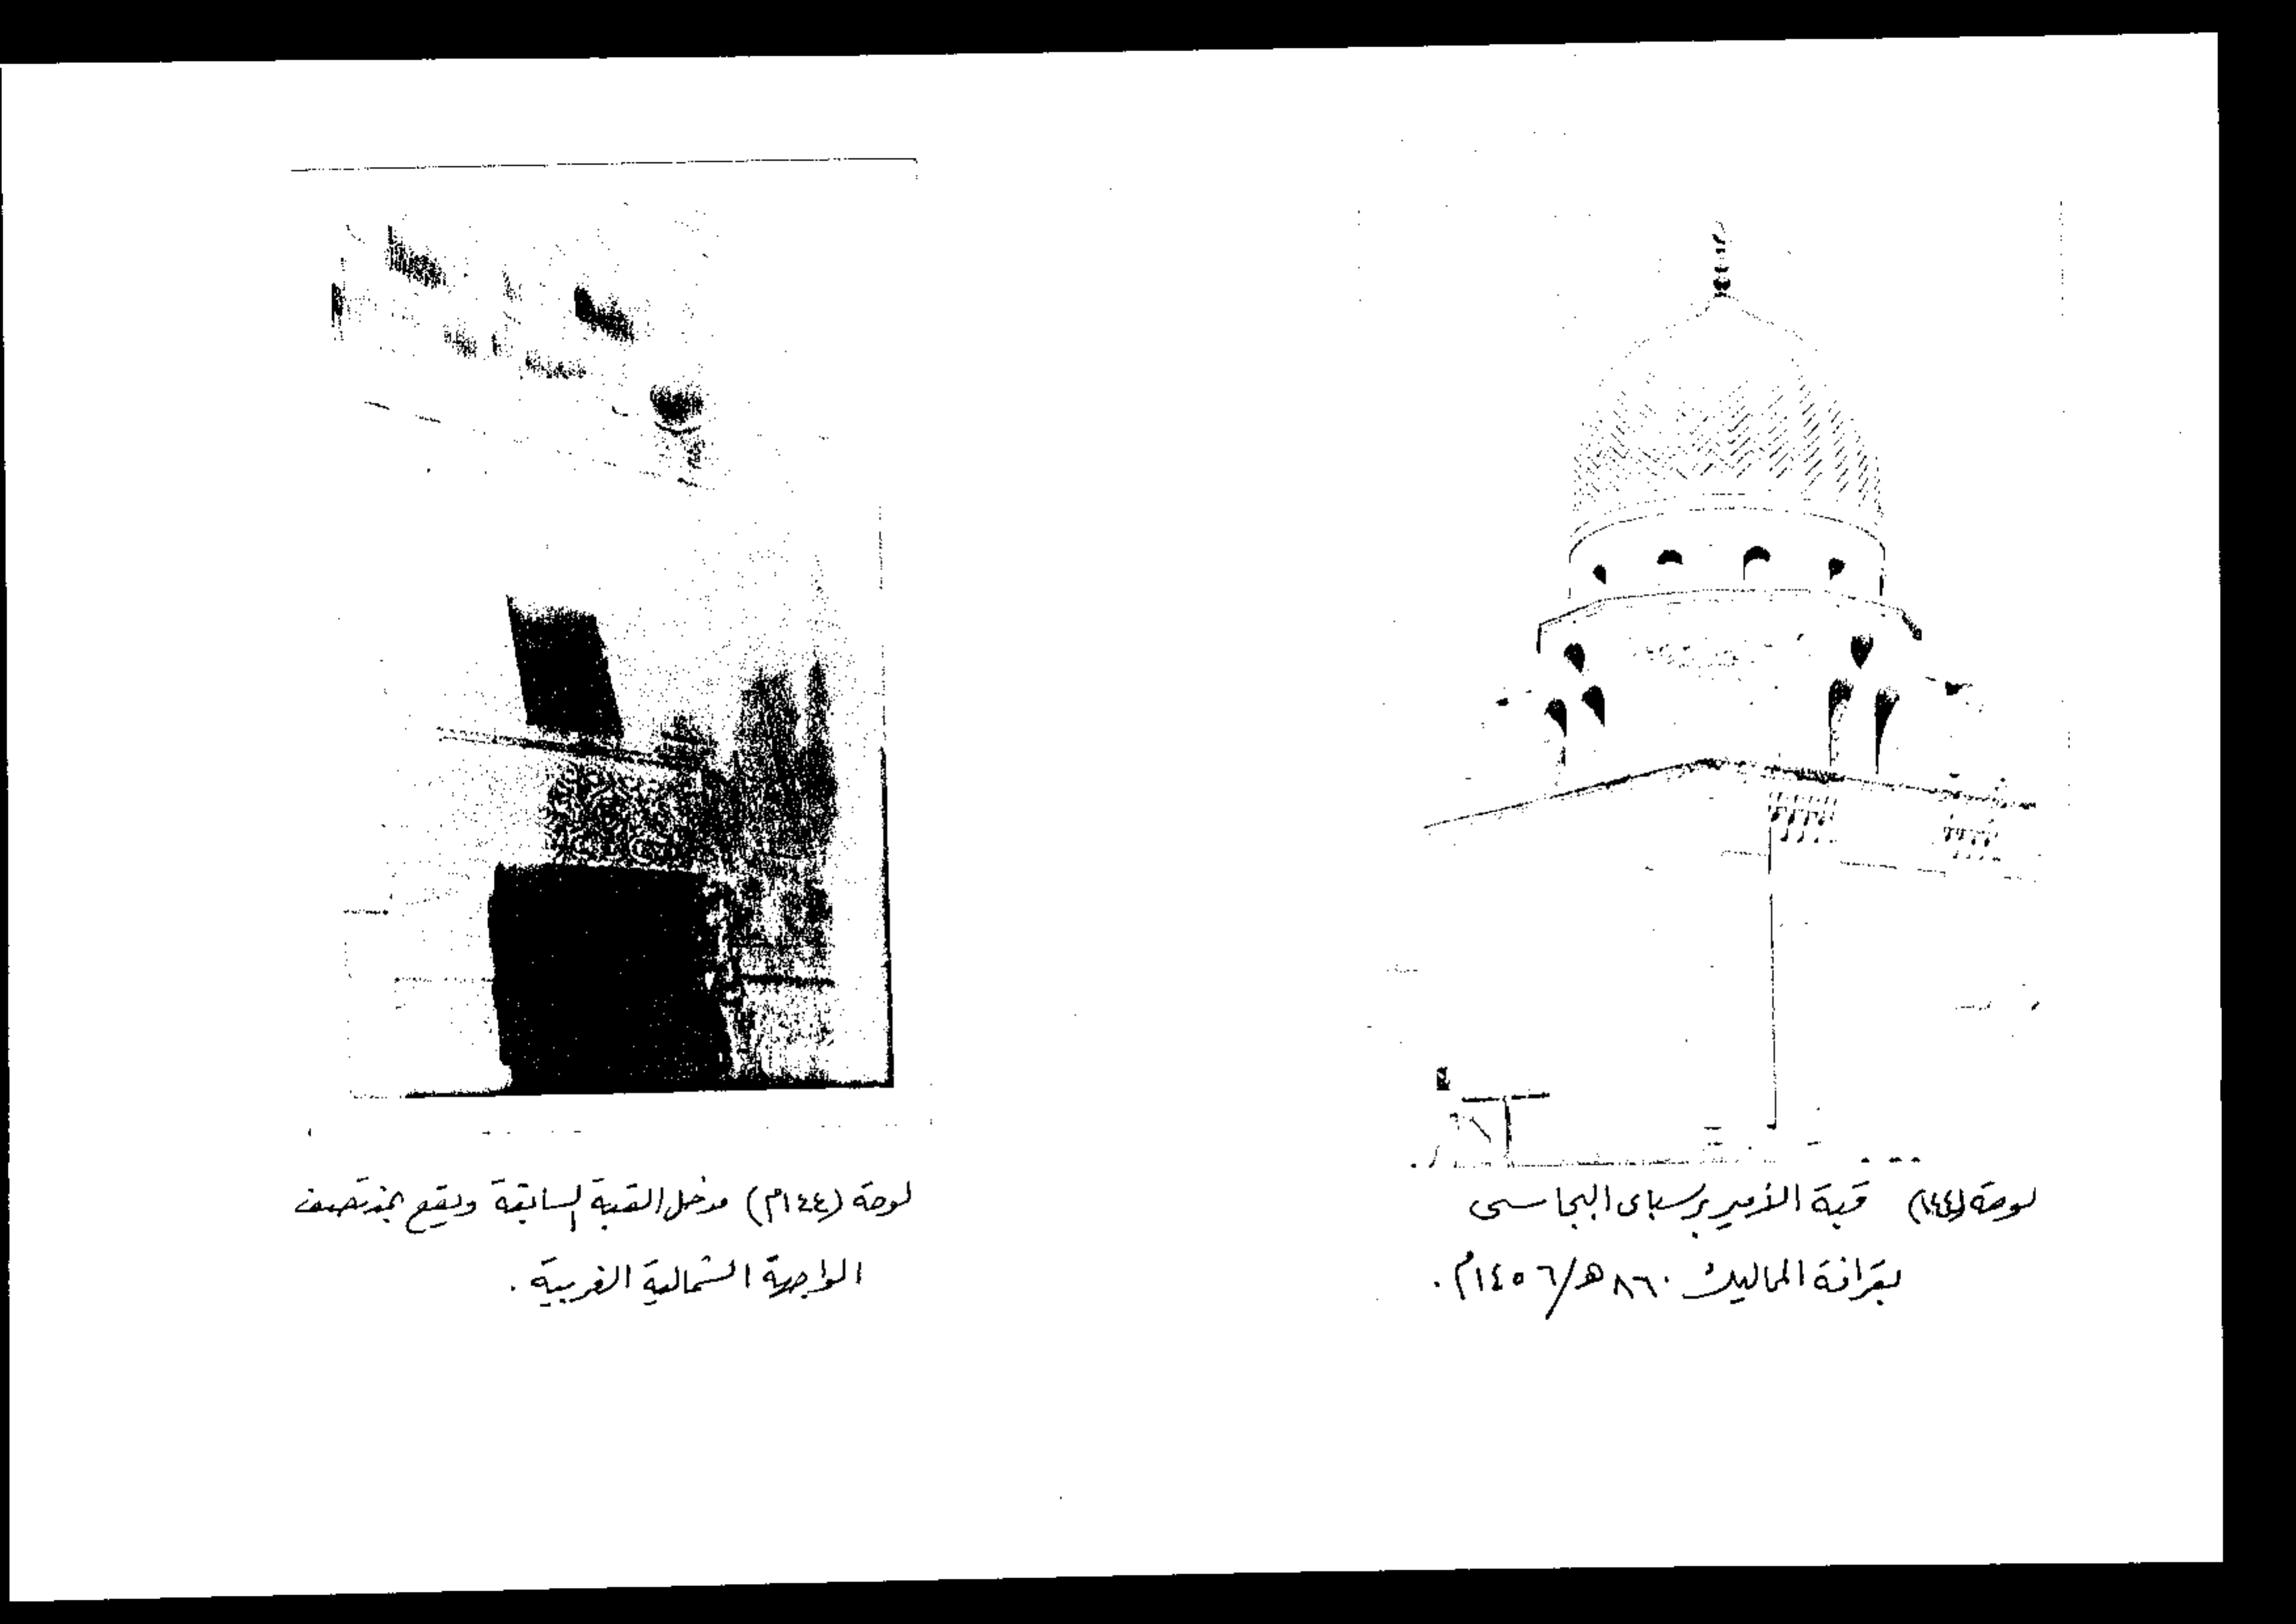 لوحة (١٤٤) قبة الأمير برسباى البجاسى
بقرافة المماليك ٨٦٠هـ/١٤٥٦م.
لوحة (١٤٤م) مدخل القبة السابقة ويقع بمنتصف
الواجهة الشمالية الغربية.